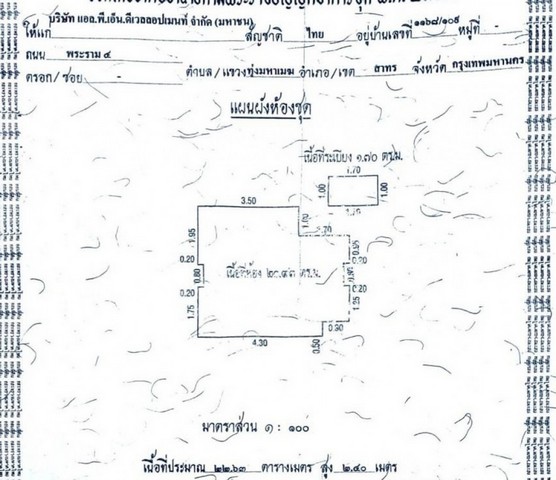 บริษัท แอล.พี.เอ็น.ดีเวลลอปเมนท์ จำกัด (มหาชน)
ให้แก่ สัญชาติ ไทย อยู่บ้านเลขที่ ๑๑๖๘/๑๐๙ หมู่ที่ -
ถนน พระราม ๔
ตรอก/ซอย - ตำบล/แขวงทุ่งมหาเมฆ อำเภอ/เขต สาทร จังหวัด กรุงเทพมหานคร
แผนผังห้องชุด
เนื้อที่ระเบียง ๑.๗๐ ตร.ม.
1.70
1.00
1.00
1.70
3.50
1.00
1.95
0.95
0.20
0.20
0.80
เนื้อที่ห้อง ๒๐.๙๓ ตร.ม.
0.20
0.20
1.75
1.25
0.90
4.30
0.50
มาตราส่วน ๑ : ๑๐๐
เนื้อที่ประมาณ ๒๒.๖๓ ตารางเมตร สูง ๒.๔๐ เมตร